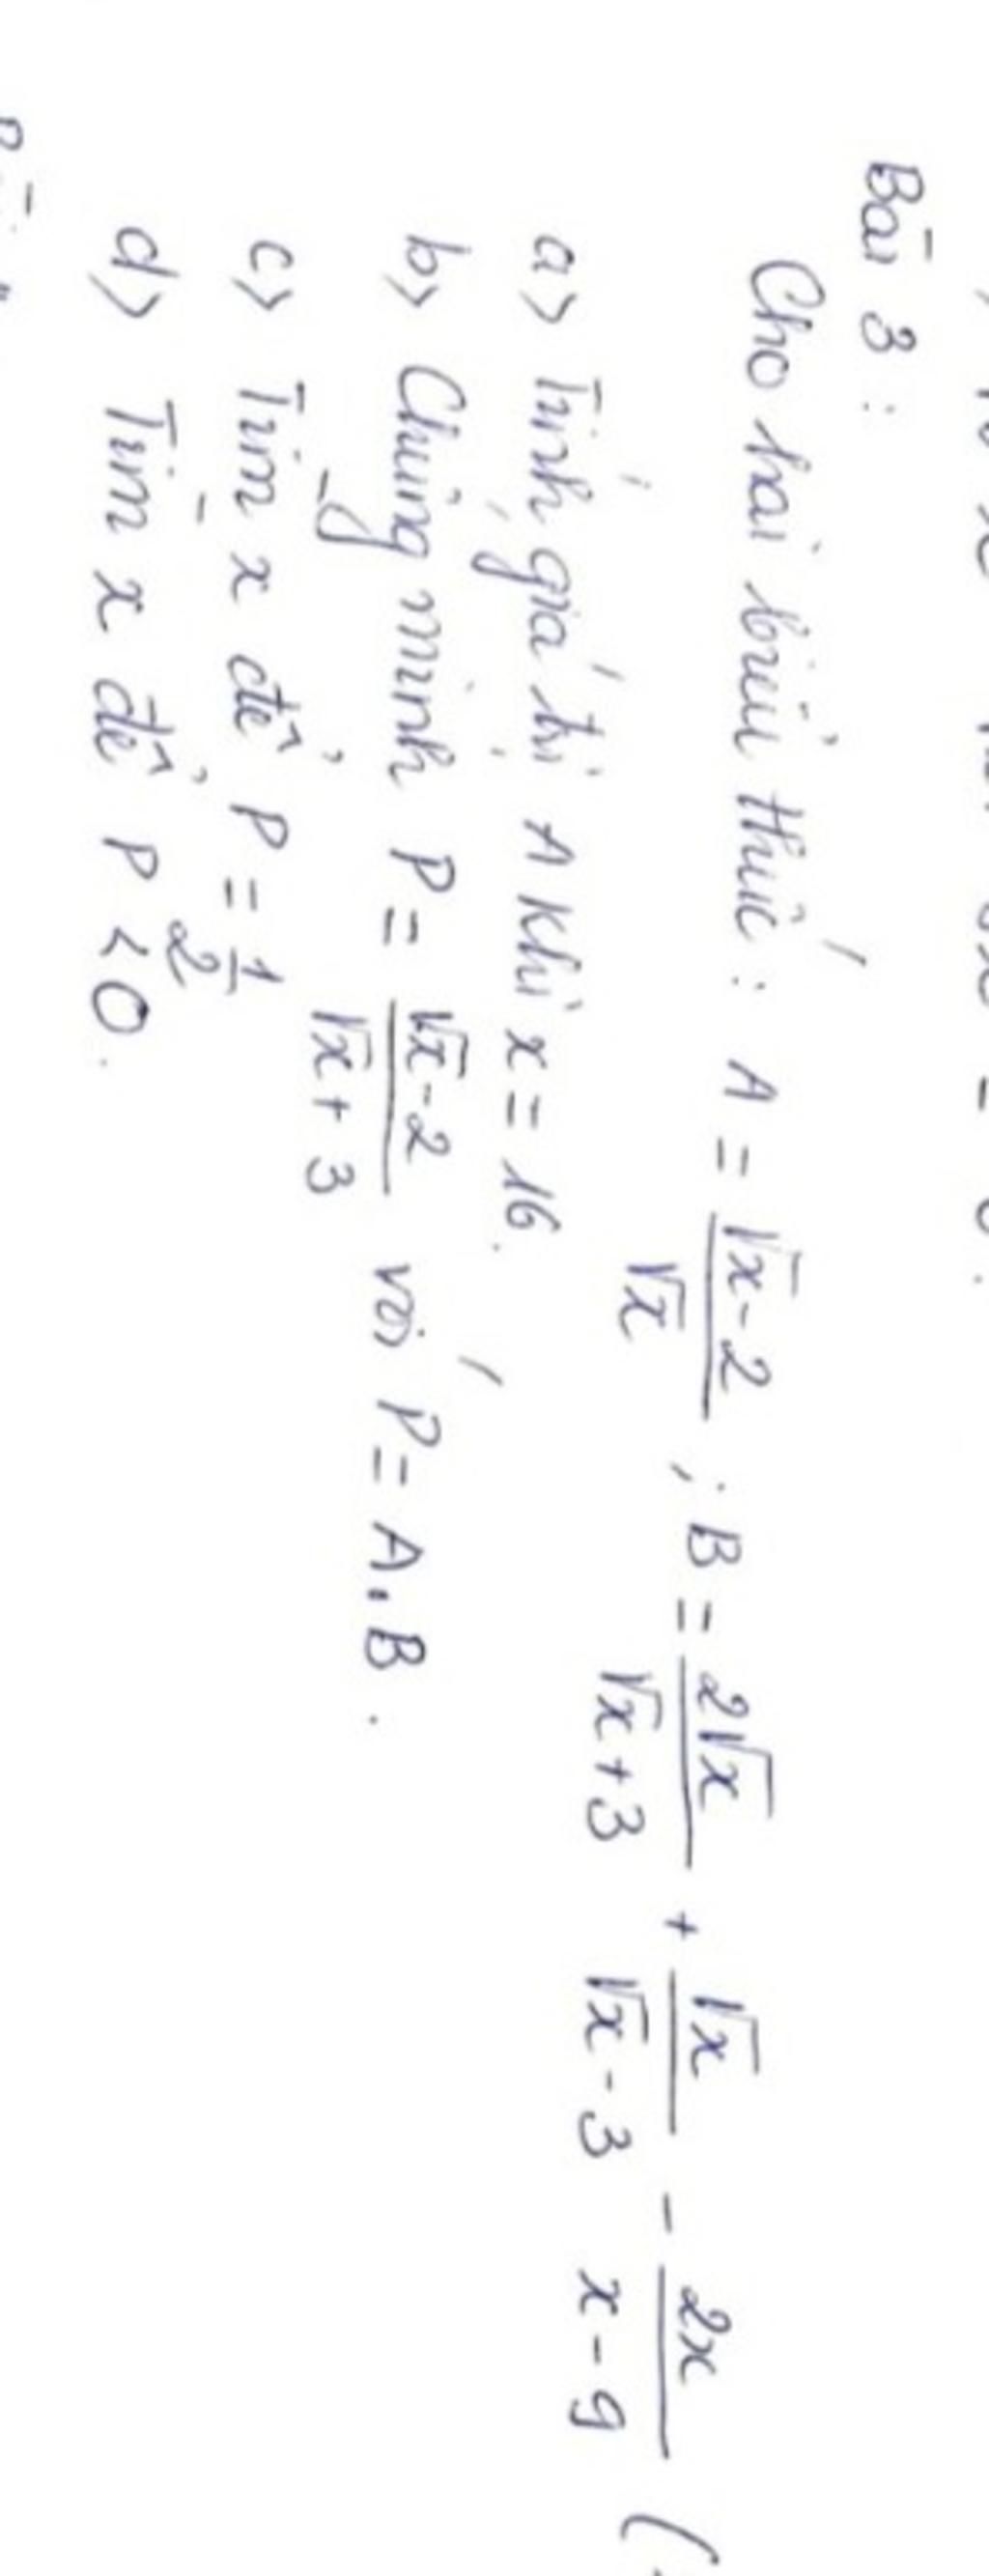 Bài 3 :
Cho hai biểu thức : A = (√x - 2)/√x ; B = 2√x/(√x + 3) + √x/(√x - 3) - 2x/(x - 9) (
a> Tính giá trị A khi x = 16.
b> Chứng minh P = (√x - 2)/(√x + 3) với P = A.B.
c> Tìm x để P = 1/2
d> Tìm x để P < 0.